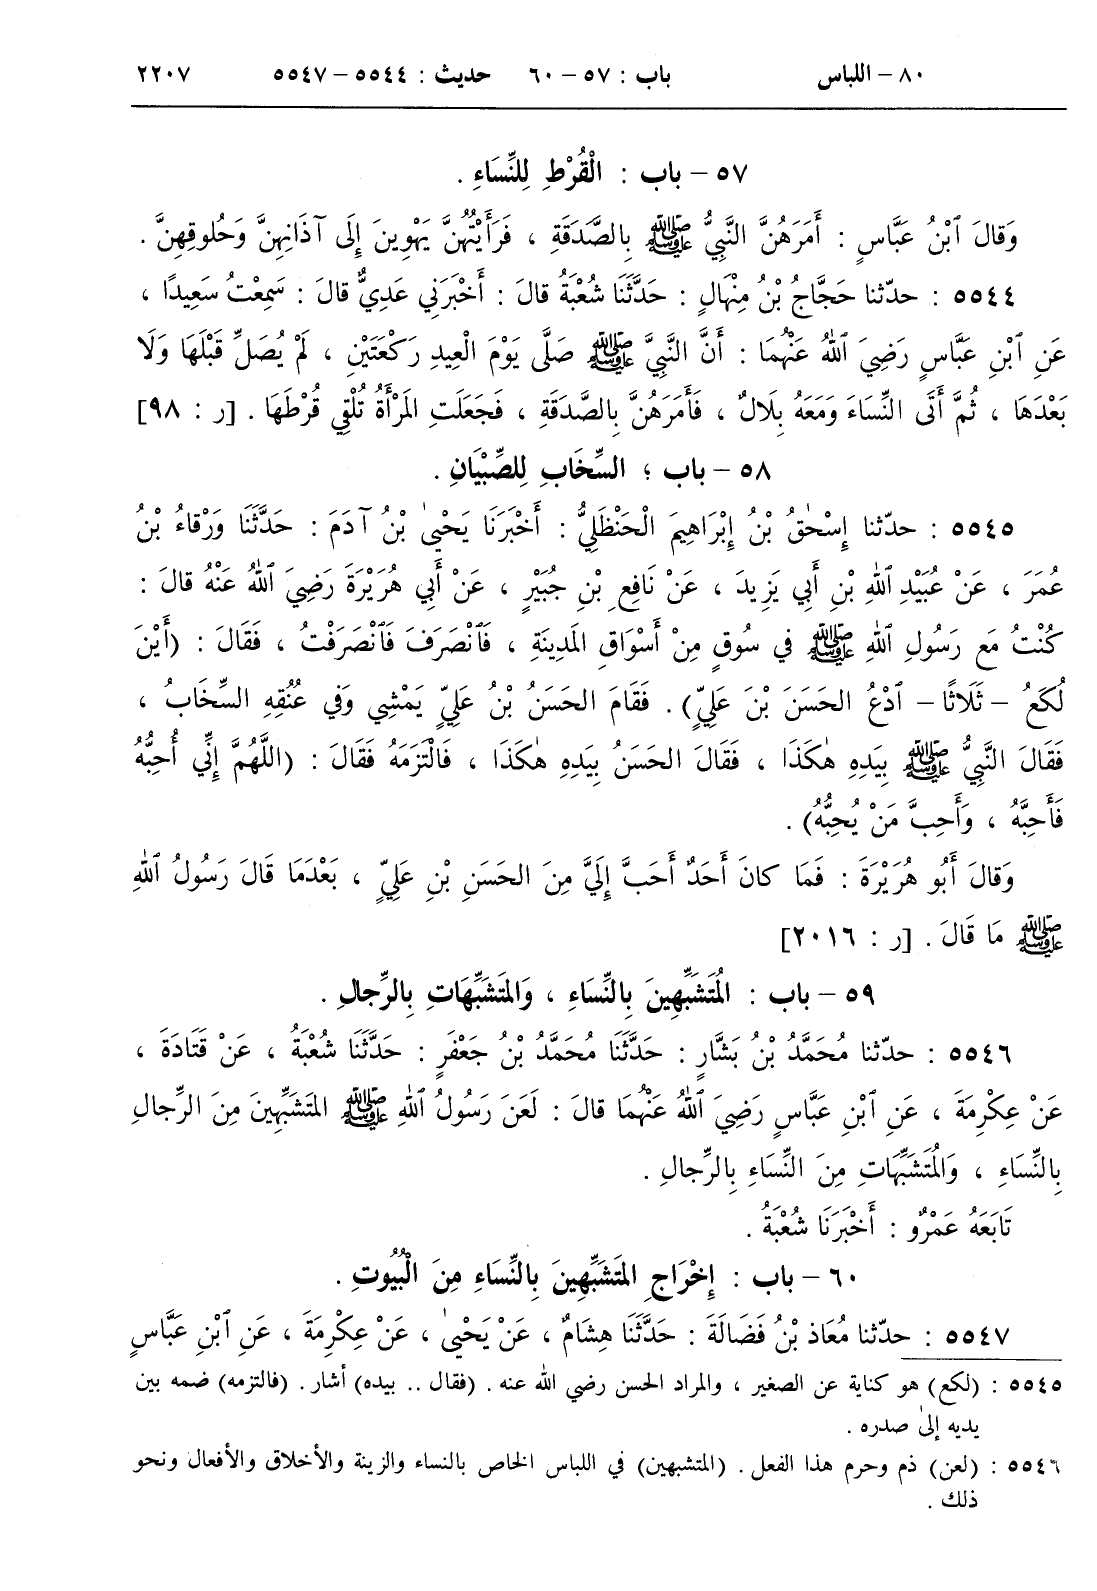 ٨٠ – اللباس باب : ٥٧ – ٦٠ حديث : ٥٥٤٤ – ٥٥٤٧ ٢٢٠٧
٥٧ – باب : الْقُرْطِ لِلنِّسَاءِ .
وَقالَ ٱبْنُ عَبَّاسٍ : أَمَرَهُنَّ النَّبِيُّ ﷺ بِالصَّدَقَةِ ، فَرَأَيْتُهُنَّ يَهْوِينَ إِلَى آذَانِهِنَّ وَحُلُوقِهِنَّ .
٥٥٤٤ : حدّثنا حَجَّاجُ بْنُ مِنْهَالٍ : حَدَّثَنَا شُعْبَةُ قالَ : أَخْبَرَنِي عَدِيٌّ قالَ : سَمِعْتُ سَعِيدًا ،
عَنِ ٱبْنِ عَبَّاسٍ رَضِيَ ٱللهُ عَنْهُمَا : أَنَّ النَّبِيَّ ﷺ صَلَّى يَوْمَ الْعِيدِ رَكْعَتَيْنِ ، لَمْ يُصَلِّ قَبْلَهَا وَلَا
بَعْدَهَا ، ثُمَّ أَتَى النِّسَاءَ وَمَعَهُ بِلَالٌ ، فَأَمَرَهُنَّ بِالصَّدَقَةِ ، فَجَعَلَتِ المَرْأَةُ تُلْقِي قُرْطَهَا . [ر : ٩٨]
٥٨ – باب ؛ السِّخَابِ لِلصِّبْيَانِ .
٥٥٤٥ : حدّثنا إِسْحٰقُ بْنُ إِبْرَاهِيمَ الْحَنْظَلِيُّ : أَخْبَرَنَا يَحْيىٰ بْنُ آدَمَ : حَدَّثَنَا وَرْقاءُ بْنُ
عُمَرَ ، عَنْ عُبَيْدِ ٱللهِ بْنِ أَبِي يَزِيدَ ، عَنْ نَافِعِ بْنِ جُبَيْرٍ ، عَنْ أَبِي هُرَيْرَةَ رَضِيَ ٱللهُ عَنْهُ قالَ :
كُنْتُ مَعَ رَسُولِ ٱللهِ ﷺ في سُوقٍ مِنْ أَسْوَاقِ المَدِينَةِ ، فَٱنْصَرَفَ فَٱنْصَرَفْتُ ، فَقَالَ : (أَيْنَ
لُكَعُ – ثَلَاثًا – ٱدْعُ الحَسَنَ بْنَ عَلِيٍّ) . فَقَامَ الحَسَنُ بْنُ عَلِيٍّ يَمْشِي وَفي عُنُقِهِ السِّخَابُ ،
فَقَالَ النَّبِيُّ ﷺ بِيَدِهِ هٰكَذَا ، فَقَالَ الحَسَنُ بِيَدِهِ هٰكَذَا ، فَالْتَزَمَهُ فَقَالَ : (اللَّهُمَّ إِنِّي أُحِبُّهُ
فَأَحِبَّهُ ، وَأَحِبَّ مَنْ يُحِبُّهُ) .
وَقالَ أَبُو هُرَيْرَةَ : فَمَا كانَ أَحَدٌ أَحَبَّ إِلَيَّ مِنَ الحَسَنِ بْنِ عَلِيٍّ ، بَعْدَمَا قَالَ رَسُولُ ٱللهِ
ﷺ مَا قَالَ . [ر : ٢٠١٦]
٥٩ – باب : المُتَشَبِّهِينَ بِالنِّسَاءِ ، وَالمُتَشَبِّهَاتِ بِالرِّجالِ .
٥٥٤٦ : حدّثنا مُحَمَّدُ بْنُ بَشَّارٍ : حَدَّثَنَا مُحَمَّدُ بْنُ جَعْفَرٍ : حَدَّثَنَا شُعْبَةُ ، عَنْ قَتَادَةَ ،
عَنْ عِكْرِمَةَ ، عَنِ ٱبْنِ عَبَّاسٍ رَضِيَ ٱللهُ عَنْهُمَا قالَ : لَعَنَ رَسُولُ ٱللهِ ﷺ المُتَشَبِّهِينَ مِنَ الرِّجالِ
بِالنِّسَاءِ ، وَالمُتَشَبِّهَاتِ مِنَ النِّسَاءِ بِالرِّجالِ .
تَابَعَهُ عَمْرٌو : أَخْبَرَنَا شُعْبَةُ .
٦٠ – باب : إِخْرَاجِ المُتَشَبِّهِينَ بِالنِّسَاءِ مِنَ الْبُيُوتِ .
٥٥٤٧ : حدّثنا مُعَاذ بْنُ فَضَالَةَ : حَدَّثَنَا هِشَامٌ ، عَنْ يَحْيىٰ ، عَنْ عِكْرِمَةَ ، عَنِ ٱبْنِ عَبَّاسٍ
٥٥٤٥ : (لكع) هو كناية عن الصغير ، والمراد الحسن رضي الله عنه . (فقال .. بيده) أشار . (فالتزمه) ضمه بين
يديه إلىٰ صدره .
٥٥٤٦ : (لعن) ذم وحرم هذا الفعل . (المتشبهين) في اللباس الخاص بالنساء والزينة والأخلاق والأفعال ونحو
ذلك .